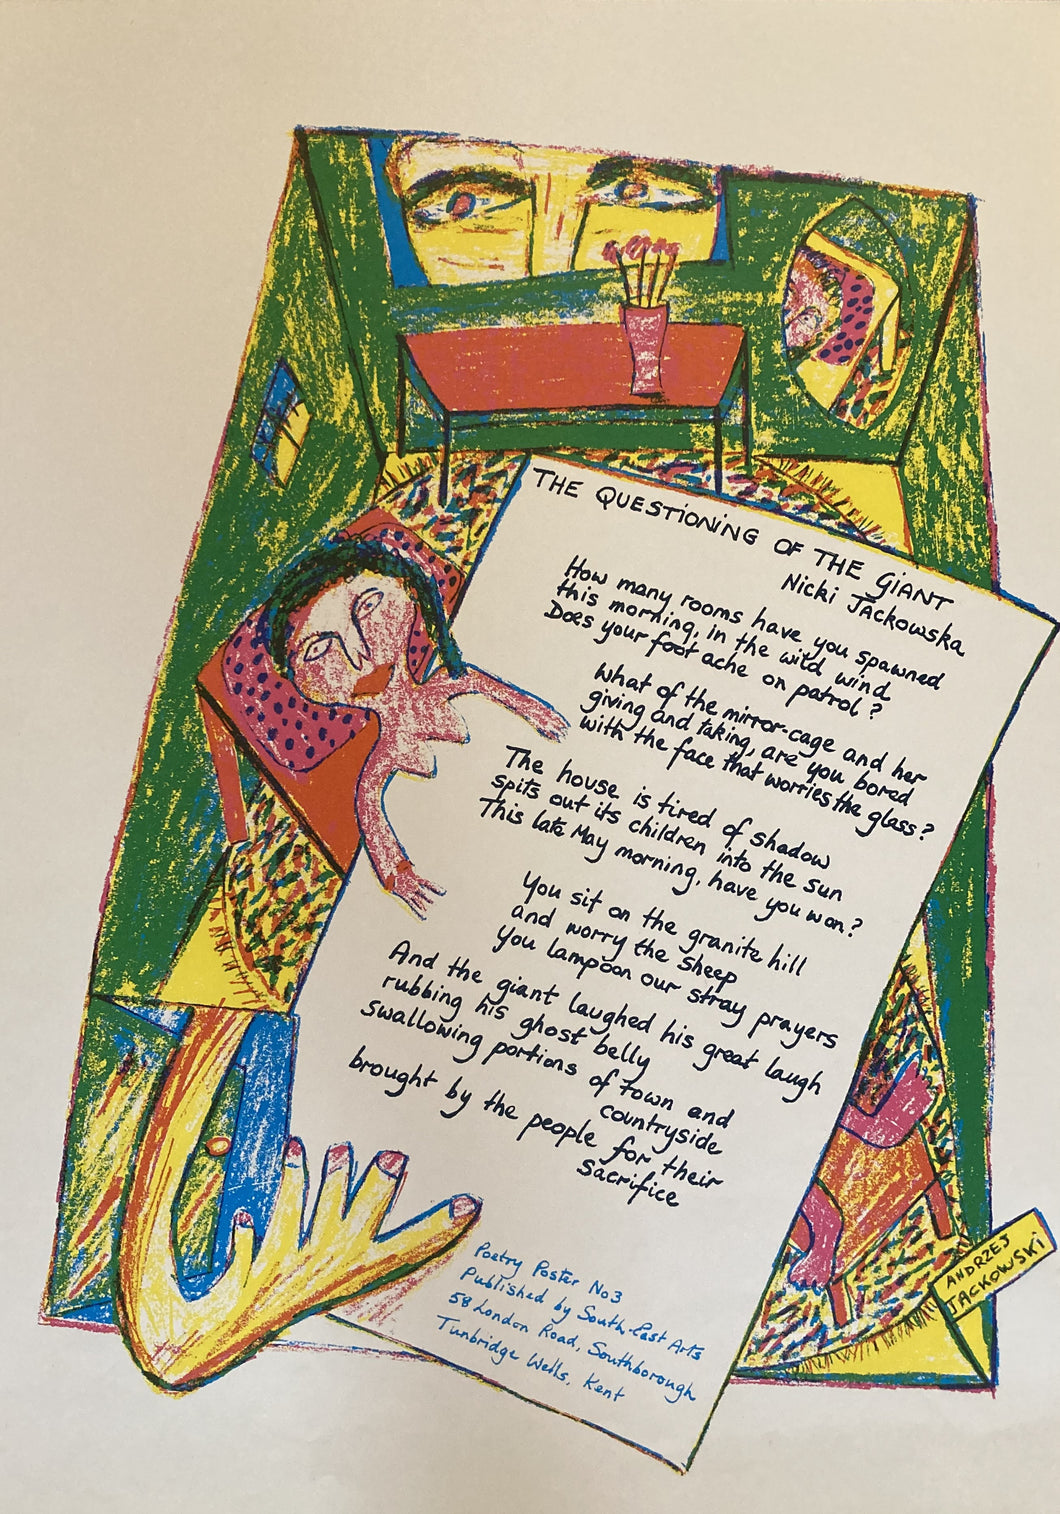 THE QUESTIONING OF THE GIANT
Nicki Jackowska
How many rooms have you spawned
this morning, in the wild wind
Does your foot ache on patrol?
What of the mirror-cage and her
giving and taking, are you bored
with the face that worries the glass?
The house is tired of shadow
spits out its children into the sun
This late May morning, have you won?
You sit on the granite hill
and worry the sheep
You lampoon our stray prayers
And the giant laughed his great laugh
rubbing his ghost belly
swallowing portions of town and
countryside
brought by the people for their
sacrifice
Poetry Poster No3
Published by South-East Arts
58 London Road, Southborough
Tunbridge Wells, Kent
ANDRZEJ
JACKOWSKI